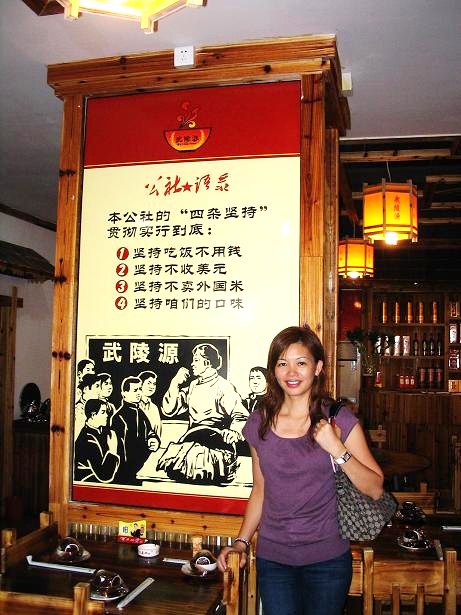 武陵源
公社★语录
本公社的“四条坚持”
贯彻实行到底：
1 坚持吃饭不用钱
2 坚持不收美元
3 坚持不卖外国米
4 坚持咱们的口味
武陵源
武陵源